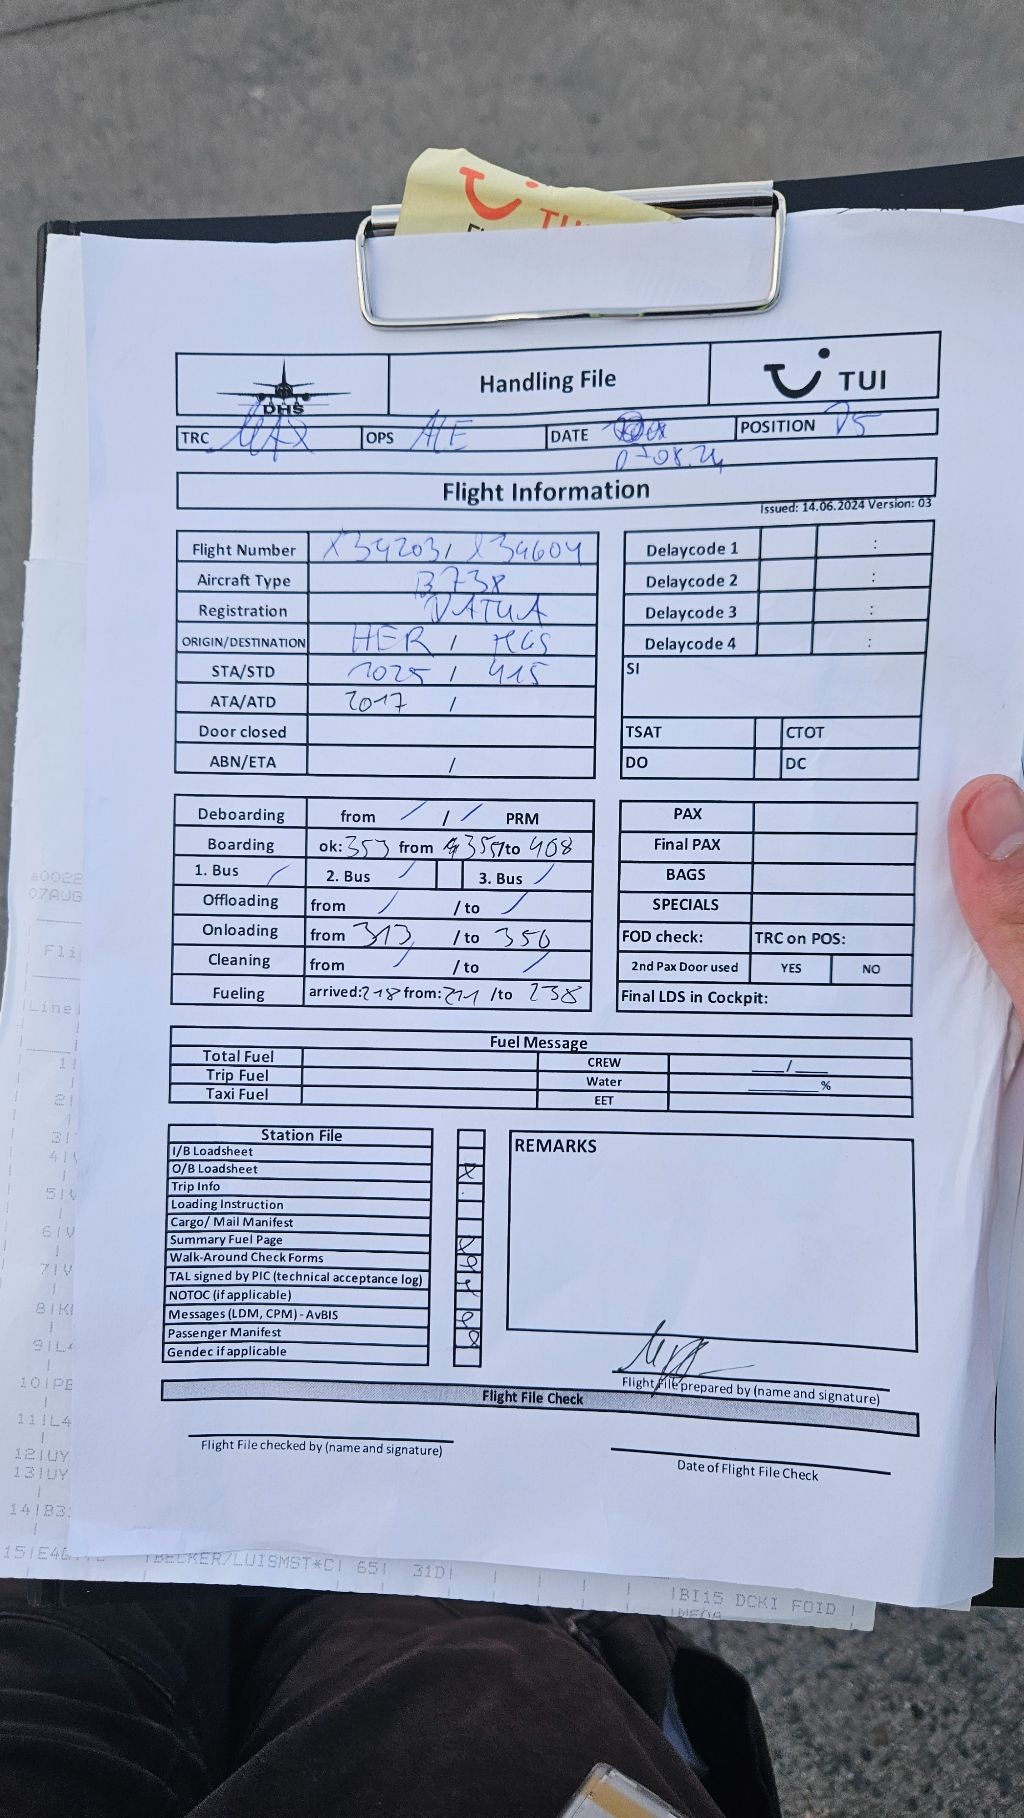 TUI
DHS
Handling File
TUI
TRC MAX OPS ALE DATE POSITION
07.08.24
Flight Information
Issued: 14.06.2024 Version: 03
Flight Number X34203 / X34604
Aircraft Type B738
Registration DATUA
ORIGIN/DESTINATION HER / KGS
STA/STD 2025 / 415
ATA/ATD 2017 /
Door closed
ABN/ETA /
Delaycode 1 :
Delaycode 2 :
Delaycode 3 :
Delaycode 4 :
SI
TSAT CTOT
DO DC
Deboarding from / / / PRM
Boarding ok: 353 from 355 /to 408
1. Bus / 2. Bus / 3. Bus /
Offloading from / / to /
Onloading from 313 / to 350
Cleaning from / / to /
Fueling arrived: 218 from: 221 /to 238
PAX
Final PAX
BAGS
SPECIALS
FOD check: TRC on POS:
2nd Pax Door used YES NO
Final LDS in Cockpit:
Fuel Message
Total Fuel CREW ___/___
Trip Fuel Water ______%
Taxi Fuel EET
Station File
I/B Loadsheet
O/B Loadsheet X
Trip Info
Loading Instruction
Cargo/ Mail Manifest
Summary Fuel Page X
Walk-Around Check Forms X
TAL signed by PIC (technical acceptance log) X
NOTOC (if applicable)
Messages (LDM, CPM) - AvBIS X
Passenger Manifest X
Gendec if applicable
REMARKS
Flight File prepared by (name and signature)
Flight File Check
Flight File checked by (name and signature)
Date of Flight File Check
a0022
07AUG
Fli
Line
1|
2|
3|
4|V
5|V
6|V
7|V
8|K
9|L
10|PE
11|L4
12|UY
13|UY
14|B3
15|E4
|BECKER/LUISMST*C| 65| 31D| | | | | |BI15 DCKI FOID |